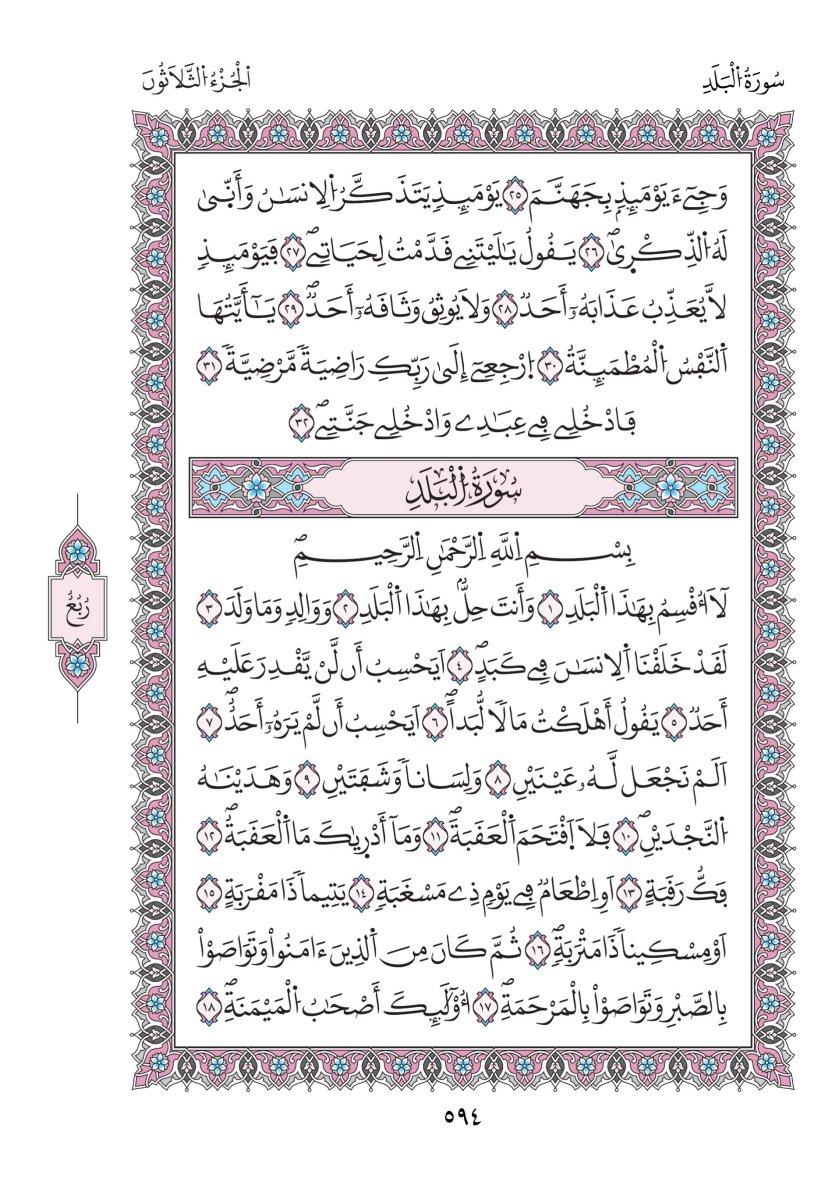 سُورَةُ اُ۬لْبَلَدِ
اَ۬لْجُزْءُ اُ۬لثَّلَاثُونَ
وَجِےٓءَ يَوْمَئِذِۢ بِجَهَنَّمَ ٢٥ يَوْمَئِذٖ يَتَذَكَّرُ اُ۬لِانسَٰنُ وَأَنّ۪ىٰ
لَهُ اُ۬لذِّكْر۪ىٰۖ ٢٦ يَقُولُ يَٰلَيْتَنِے قَدَّمْتُ لِحَيَاتِےۖ ٢٧ فَيَوْمَئِذٖ
لَّا يُعَذِّبُ عَذَابَهُۥٓ أَحَدٞ ٢٨ وَلَا يُوثِقُ وَثَاقَهُۥٓ أَحَدٞۖ ٢٩ يَٰٓأَيَّتُهَا
اَ۬لنَّفْسُ اُ۬لْمُطْمَئِنَّةُ ٣٠ اُ۪رْجِعِےٓ إِلَىٰ رَبِّكِ رَاضِيَةٗ مَّرْضِيَّةٗۖ ٣١
فَادْخُلِے فِے عِبَٰدِے وَادْخُلِے جَنَّتِےۖ ٣٢
سُورَةُ اُ۬لْبَلَدِ
بِسْمِ اِ۬للَّهِ اِ۬لرَّحْمَٰنِ اِ۬لرَّحِيمِۖ
لَآ أُقْسِمُ بِهَٰذَا اَ۬لْبَلَدِ ١ وَأَنتَ حِلُّۢ بِهَٰذَا اَ۬لْبَلَدِ ٢ وَوَالِدٖ وَمَا وَلَدَ ٣
لَقَدْ خَلَقْنَا اَ۬لِانسَٰنَ فِے كَبَدٍۖ ٤ اَيَحْسِبُ أَن لَّنْ يَّقْدِرَ عَلَيْهِ
أَحَدٞ ٥ يَقُولُ أَهْلَكْتُ مَالٗا لُّبَداًۖ ٦ اَيَحْسِبُ أَن لَّمْ يَرَهُۥٓ أَحَدٌۖ ٧
اَلَمْ نَجْعَل لَّهُۥ عَيْنَيْنِ ٨ وَلِسَاناٗ وَشَفَتَيْنِ ٩ وَهَدَيْنَٰهُ
اُ۬لنَّجْدَيْنِۖ ١٠ فَلَا اَ۪قْتَحَمَ اَ۬لْعَقَبَةَۖ ١١ وَمَآ أَدْر۪ىٰكَ مَا اَ۬لْعَقَبَةُۖ ١٢
فَكُّ رَقَبَةٍ ١٣ اَوِ اِطْعَٰمٞ فِے يَوْمٖ ذِے مَسْغَبَةٖ ١٤ يَتِيماٗ ذَا مَقْرَبَةٍ ١٥
اَوْ مِسْكِيناٗ ذَا مَتْرَبَةٖۖ ١٦ ثُمَّ كَانَ مِنَ اَ۬لذِينَ ءَامَنُواْ وَتَوَاصَوْاْ
بِالصَّبْرِ وَتَوَاصَوْاْ بِالْمَرْحَمَةِۖ ١٧ أُوْلَٰٓئِكَ أَصْحَٰبُ اُ۬لْمَيْمَنَةِۖ ١٨
رُبُعُ
٥٩٤